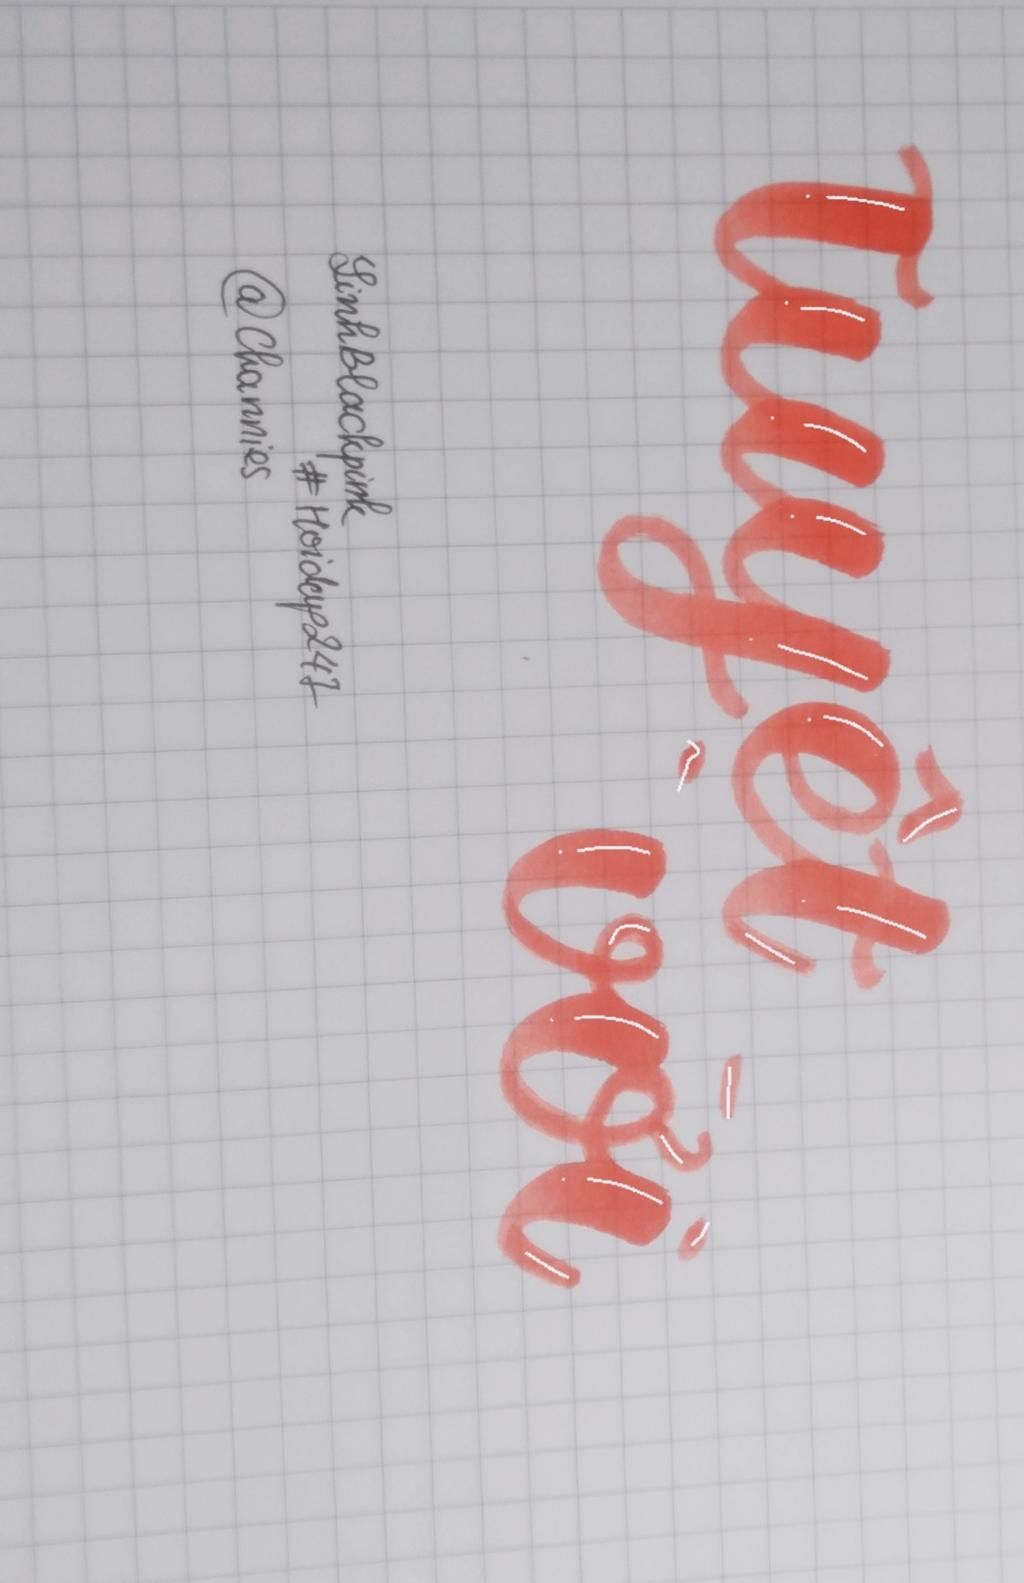 Tuyệt
vời
LinhBlackpink
#Hoidap247
@Channies